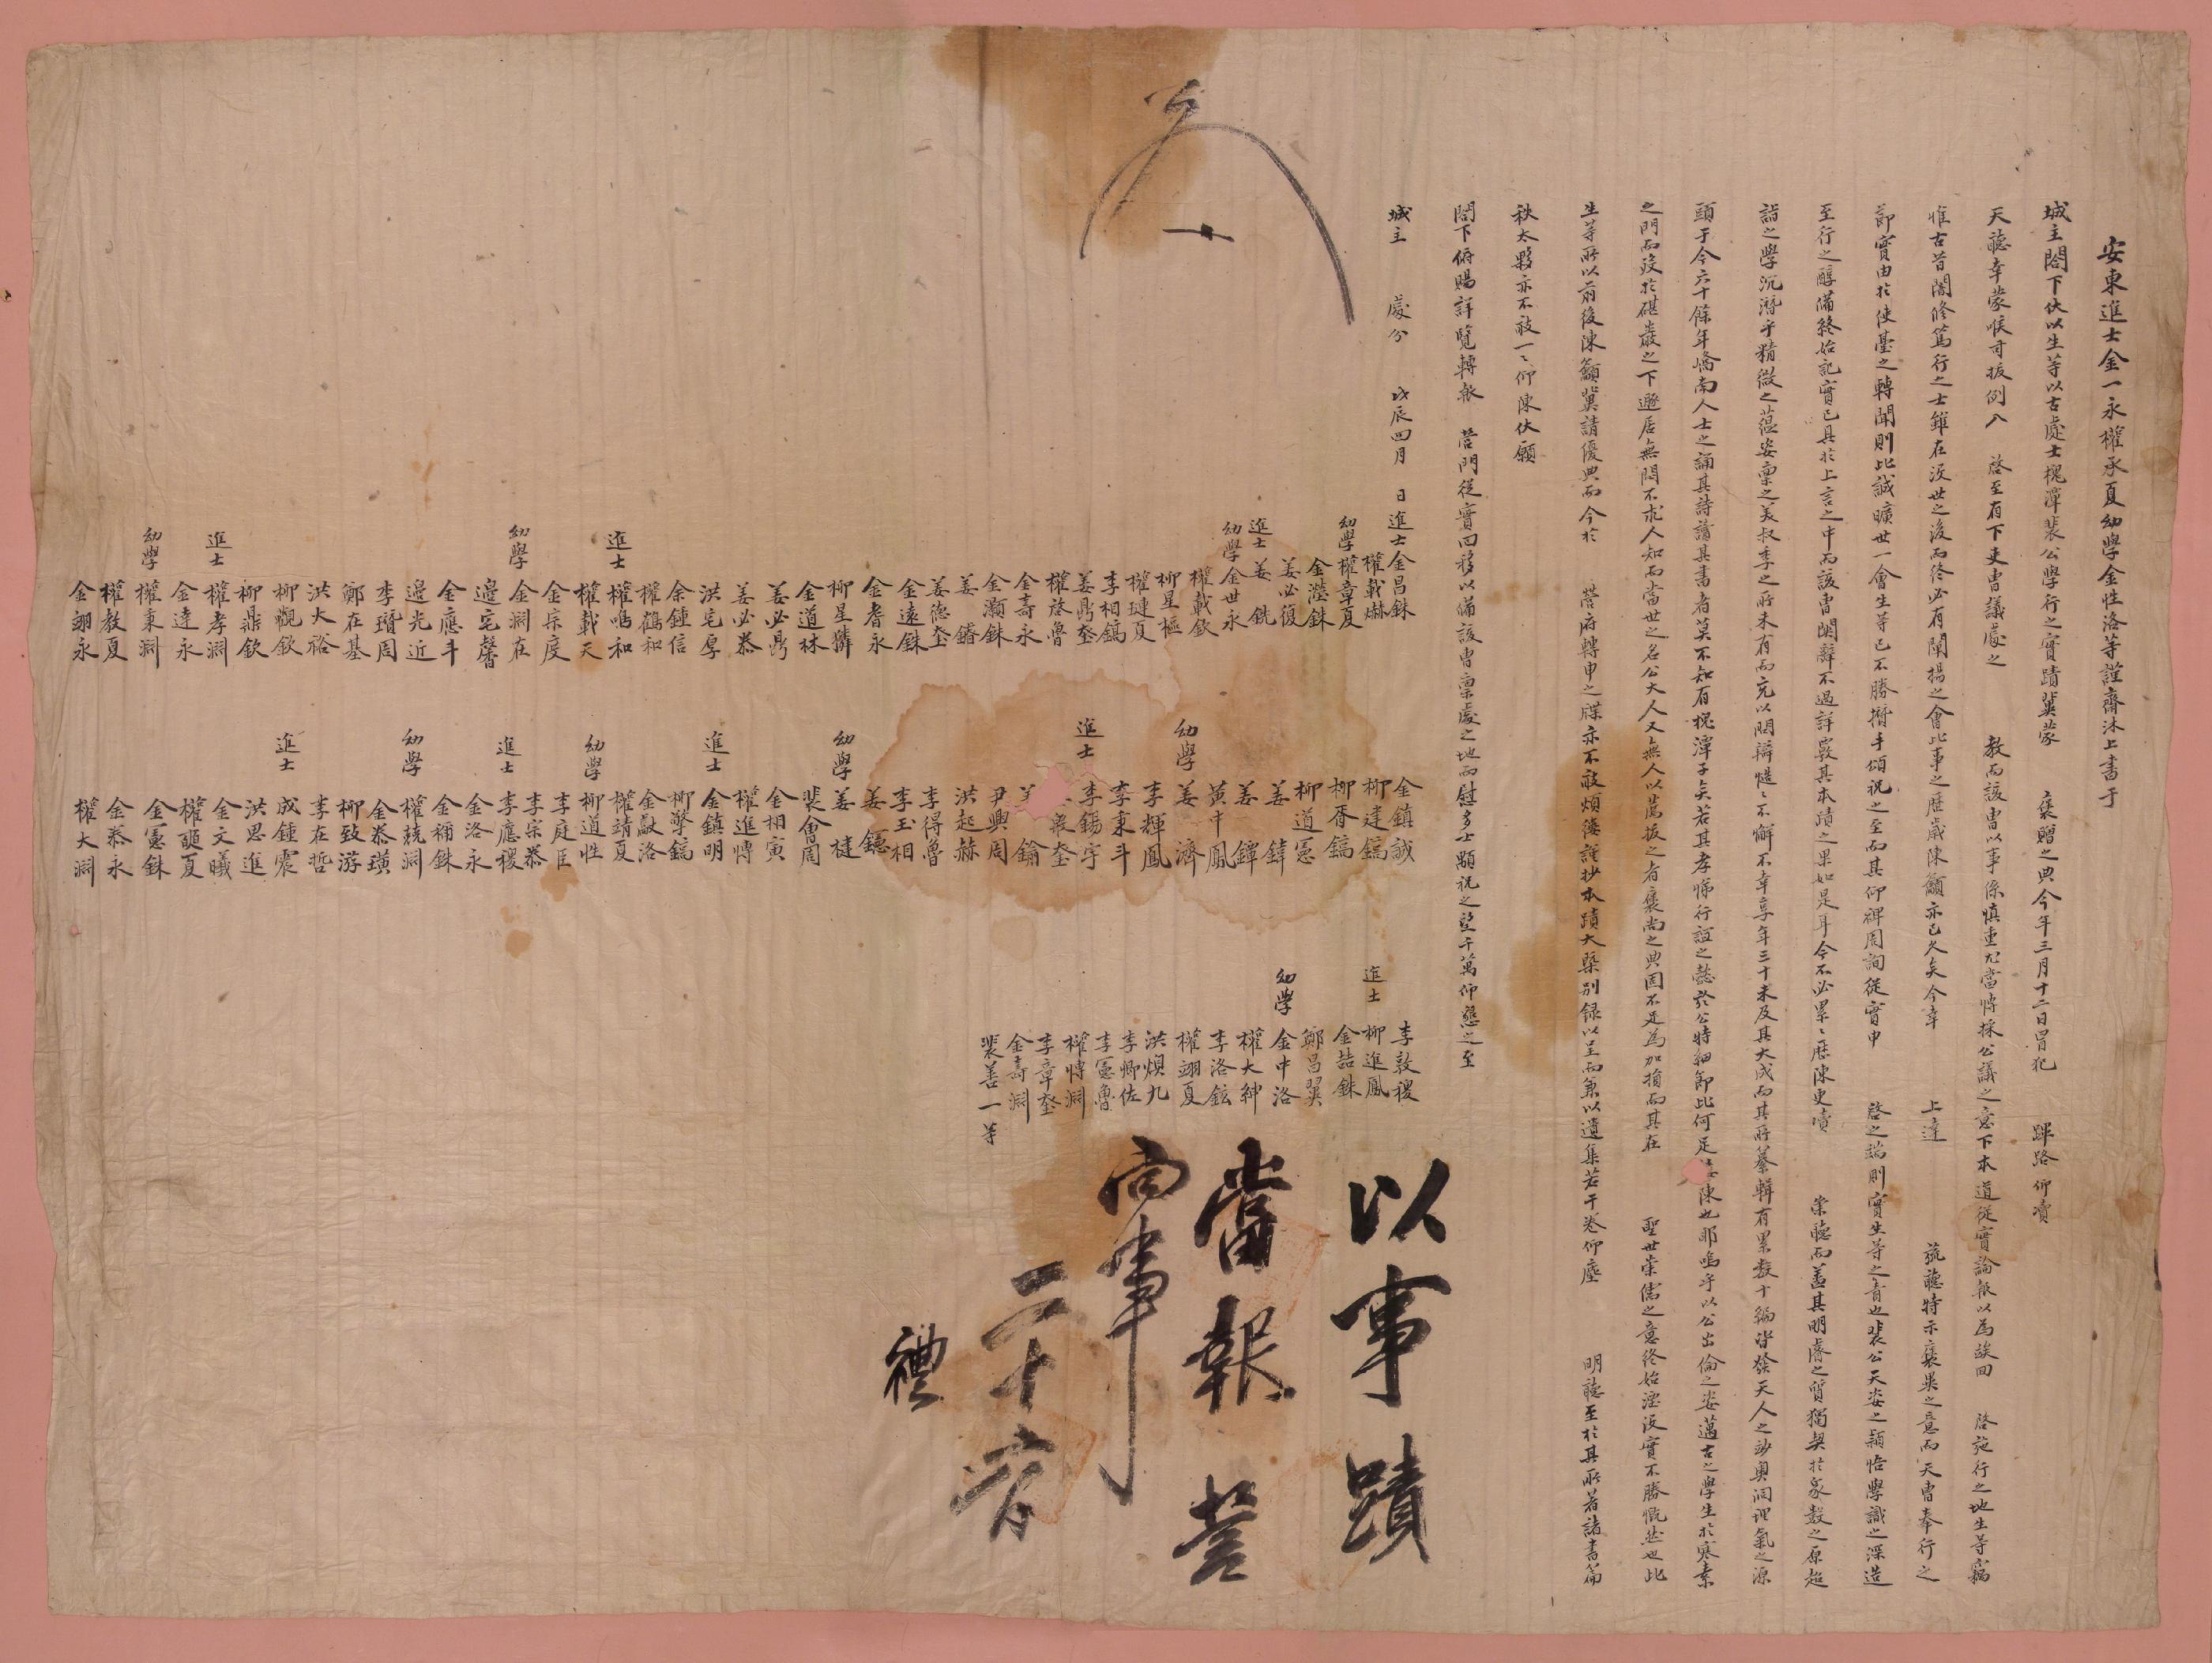 安東進士金一永權承夏幼學金性洛等謹齋沐上書于
城主閤下伏以生等以古處士槐潭裴公學行之實蹟冀蒙 褒贈之典今年三月十二日冒犯 蹕路仰凟
天聽幸蒙喉司拔例入 啓至有下吏曹議處之 敎而該曹以事係愼重尤當博採公議之意下本道從實論報以爲後回 啓施行之地生等竊
惟古昔闇修篤行之士雖在沒世之後而終必有闡揚之會此事之歷歲陳籲亦已久矣今幸 上達 蔬聽特示褒異之意而天曹奉行之
節實由於使臺之轉聞則此誠曠世一會生等已不勝攢手頌祝之至而其仰裨周詢從實申 啓之端則實生等之責也裴公天姿之穎悟學識之深造
至行之醇備終始記實已具於上言之中而該曹關辭不過詳覈其本蹟之果如是耳今不必累〻歷陳更凟 崇聽而盖其明睿之質獨契於象數之原超
詣之學沉潛乎精微之蘊姿稟之美叔季之所未有而充以問辨慥〻不懈不幸享年三十未及其大成而其所纂輯有累數十編皆發天人之妙奧洞理氣之源
頭于今六十餘年嶠南人士之誦其詩讀其書者莫不知有槐潭子矣若其孝悌行誼之懿於公特細節比何足 陳也耶嗚乎以公出倫之姿邁古之學生於寒素
之門而沒於碪巖之下遯居無悶不求人知而當世之名公大人又無人以薦拔之者褒尙之典固不足爲加損而其在 聖世崇儒之意終始湮沒實不勝慨然也此
生等所以前後陳籲冀請優典而今於 營府轉申之牒亦不敢煩縷謹抄本蹟大槩別錄以呈而兼以遺集若干卷仰塵 明聽至於其所著諸書篇
秩太夥亦不敢一〻仰陳伏願
閤下俯賜詳覽轉報 營門從實回移以備該曹稟處之地而慰多士顒祝之望千萬仰懇之至
城主 處分 戊辰四月 日
進士金昌銖
權載爀
幼學權章夏
金瀅銖
姜必復
進士姜 銑
幼學金世永
權載欽
柳星樞
權璉夏
李相鎬
姜鼎奎
權啓魯
金壽永
金灝銖
姜 鐥
姜德奎
金遠銖
金耆永
柳星隣
金道林
姜必鼎
姜必恭
洪宅厚
余鍾信
權鶴和
進士權鳴和
權載天
金宗度
幼學金澗在
邊宅馨
金應斗
邊光近
李瑨周
鄭在基
洪大裕
柳觀欽
柳鼎欽
進士權孝淵
金達永
幼學權秉淵
權敎夏
金翊永
金鎭誠
柳建鎬
柳胥鎬
柳道憲
姜 鍏
姜 鐔
黃中鳳
幼學姜 濟
李輝鳳
李秉斗
進士李錫宇
奎
姜 鑰
尹興周
洪起赫
李得魯
李玉相
姜 鐚
幼學姜 楗
裴會周
金相寅
權進博
進士金鎭明
柳擎鎬
金獻洛
權靖夏
幼學柳道性
李庭臣
李宗恭
進士李應稷
金洛永
金禰銖
幼學權兢淵
金恭璜
柳致游
李在哲
進士成鍾震
洪思進
金文曦
權頤夏
金憲銖
金恭永
權大淵
李敦稷
進士柳進鳳
金喆銖
鄭昌翼
幼學金中洛
權大紳
李洛鉉
權翊夏
洪烜九
李卿佐
李憲魯
權博淵
李章奎
金壽淵
裴善一等
以事蹟
當報營
向事
二十六日
禮